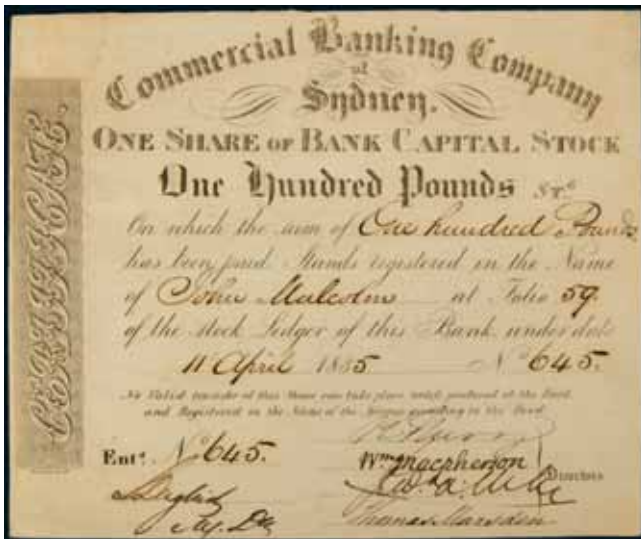 Commercial Banking Company
of
Sydney.
ONE SHARE OF BANK CAPITAL STOCK
One Hundred Pounds St.g
On which the sum of One hundred Pounds
has been paid Stands registered in the Name
of John Malcolm at Folio 59.
of the Stock Ledger of this Bank under date
11 April 1835 No 645.
No Valid transfer of this Share can take place until produced at the Bank
and Registered in the Name of the
Entd. No 645.
Wm Macpherson
Directors
Thomas Marsden
CERTIFICATE.